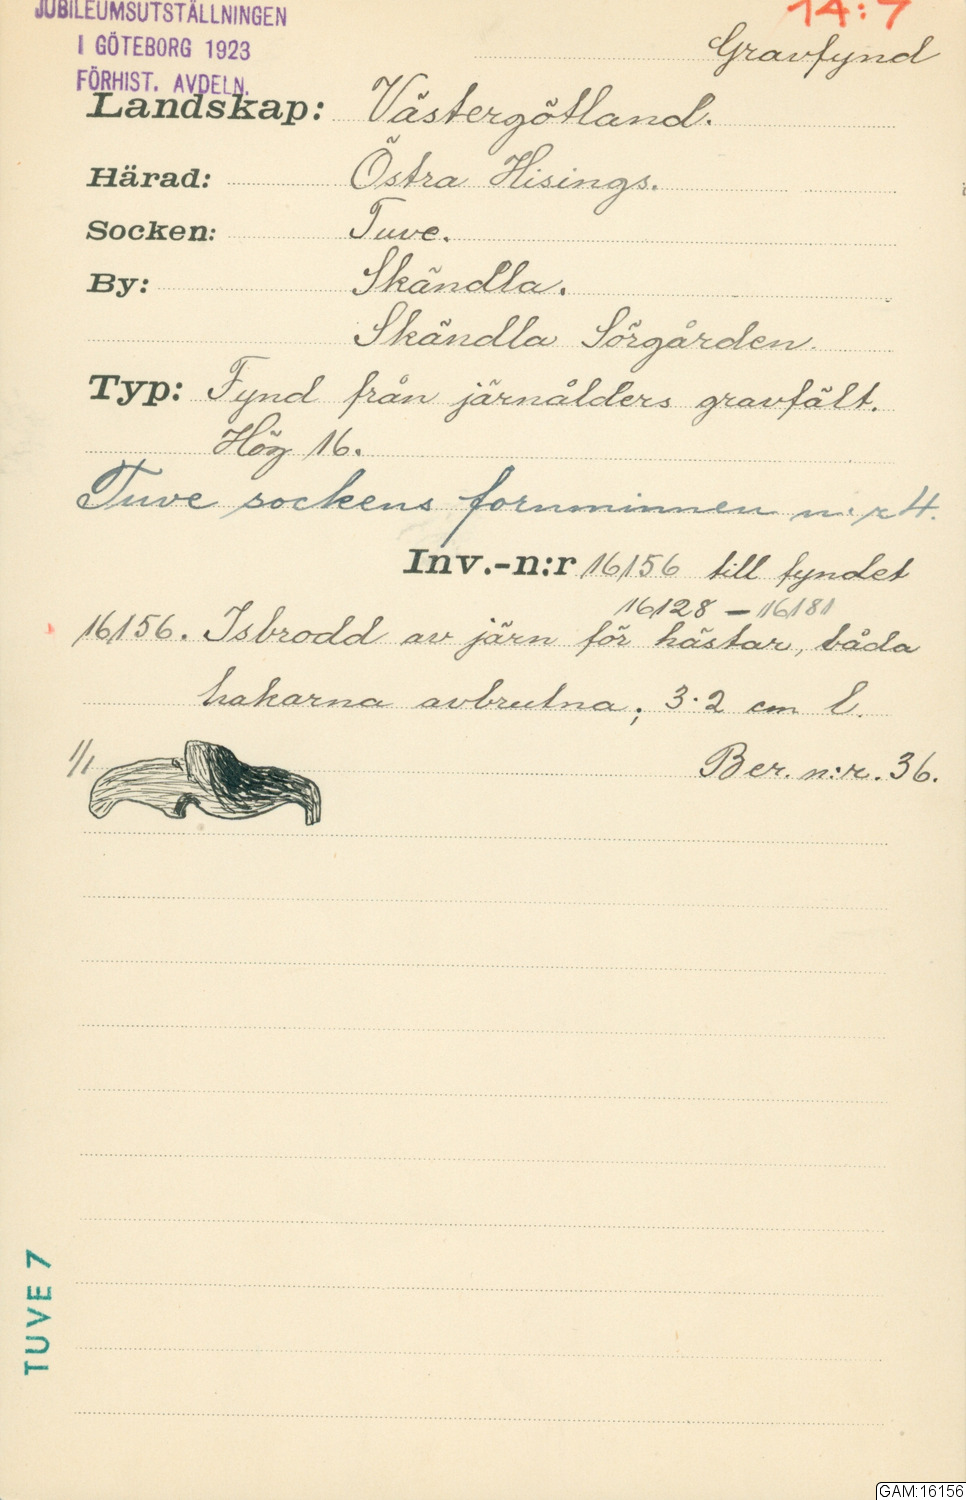 JUBILEUMSUTSTÄLLNINGEN
I GÖTEBORG 1923
FÖRHIST. AVDELN.
14:7
Gravfynd
Landskap: Västergötland.
Härad: Östra Hisings.
Socken: Tuve.
By: Skändla.
Skändla Sörgården.
Typ: Fynd från järnålders gravfält.
Hög 16.
Tuve sockens fornminnen n:r 4.
Inv.-n:r 16156 till fyndet
16128 – 16181
16156. Isbrodd av järn för hästar, båda
hakarna avbrutna; 3·2 cm l.
1/1
Ber. n:r. 36.
TUVE 7
GAM:16156